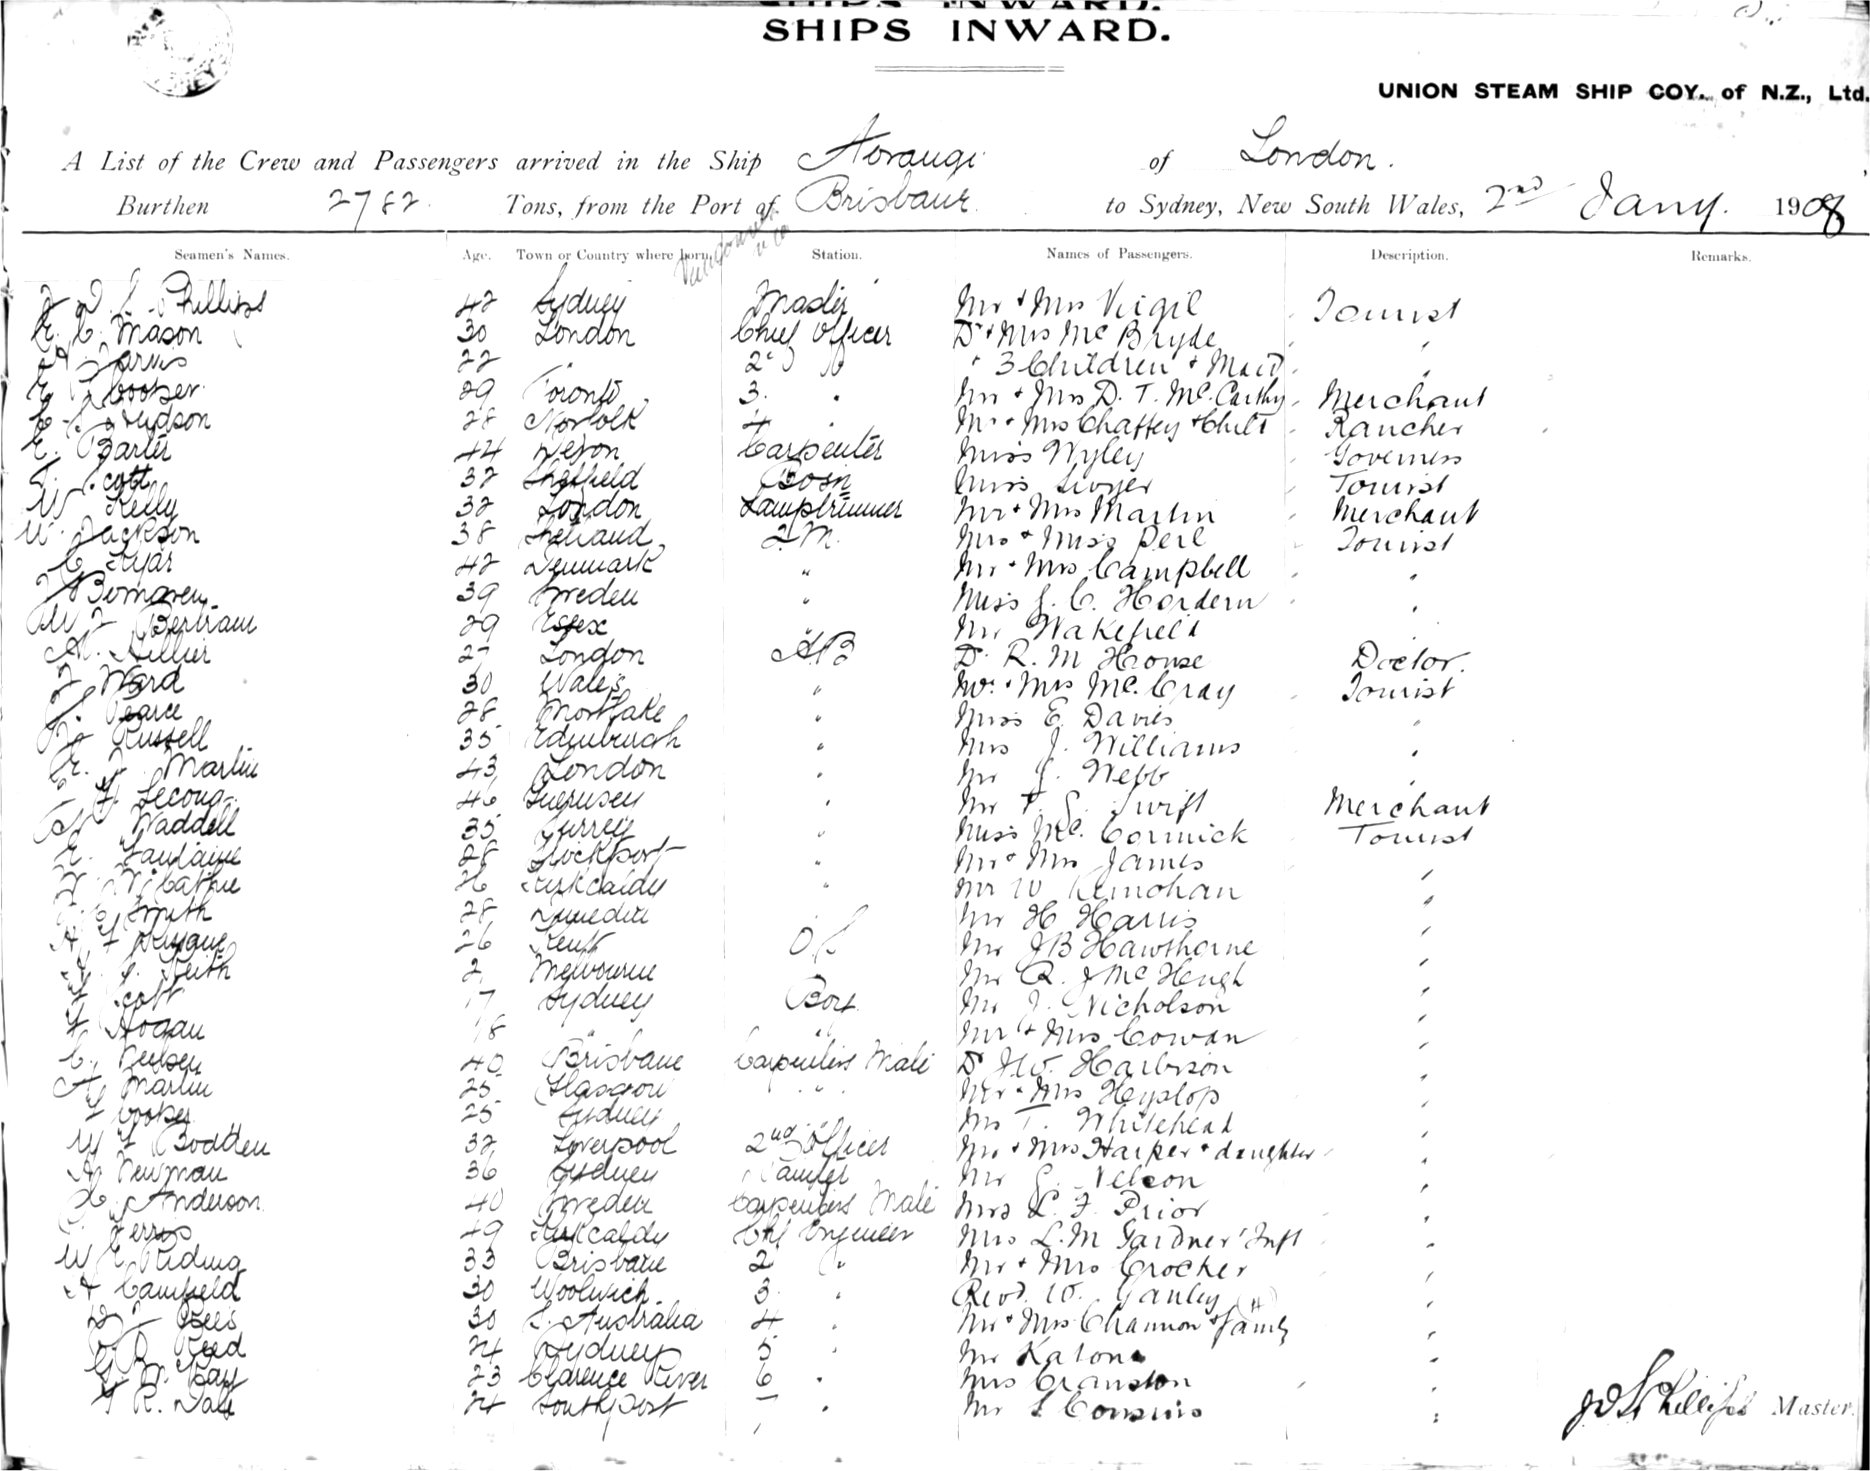 SHIPS INWARD.
UNION STEAM SHIP COY. of N.Z., Ltd.
A List of the Crew and Passengers arrived in the Ship Aorangi of London.
Burthen 2782 Tons, from the Port of Brisbane to Sydney, New South Wales, 2nd Jany. 1908
Seamen's Names. Age. Town or Country where born. Station. Names of Passengers. Description. Remarks.
Phillips 42 Sydney Master Mr & Mrs Virgil Tourist
C. Mason 30 London Chief Officer Dr & Mrs McBryde "
22 " 2 " " 3 Children & Maid "
Cooper 29 Toronto 3. " Mr & Mrs D. T. McCarthy Merchant
Hudson 28 Norfolk 4 " Mr & Mrs Chaffey & Child Rancher
E. Barter 44 Devon Carpenter Miss Wyley Governess
Scott 32 Sheffield Bosn Miss Tourist
W Kelly 32 London Lamptrimmer Mr & Mrs Martin Merchant
W. Jackson 38 Q.M. Mrs & Miss Peil Tourist
C. 42 Denmark " Mr & Mrs Campbell "
39 Sweden " Miss J. C. Hordern "
Bertram 29 Essex " Mr Wakefield "
A. Hillier 27 London AB Dr R. M House Doctor.
Ward 30 Wales " Mr & Mrs McCray Tourist
Pearce 28 Mortlake " Miss E Davies "
Russell 35 Edinburgh " Mrs J. Williams "
Martin 43 London " Mr J. Webb "
46 Guernsey " Mr Swift Merchant
Waddell 35 Surrey " Miss McCormick Tourist
28 Stockport " Mr & Mrs James "
26 Kirkcaldy " Mr W Kernohan "
Smith 28 Dunedin Mr H Harris "
A 26 Kent O.S. Mr J B Hawthorne "
Keith 2 Melbourne Mr R. J McHeugh "
Scott 17 Sydney Boy Mr J. Nicholson "
Hogan 18 " " Mr & Mrs Cowan "
C. Nielsen 40 Brisbane Carpenters Mate Dr J W. Harbison "
A Martin 25 Glasgow " " Mr & Mrs Heyslop "
Cooper 25 Sydney " Mr T. Whitehead "
W Bodden 32 Liverpool 2nd Officer Mr & Mrs Harper & daughter "
A Newman 36 Sydney Mr G. Nelson "
Anderson 40 Sweden Carpenters Mate Mrs L. F. Prior "
Ferris 49 Kirkcaldy Chf Engineer Mrs L. M Gardner & Inft "
W E Riding 33 Brisbane 2 " Mr & Mrs Crocker "
A Camfield 30 Woolwich. 3 " Revd. W. Ganley "
Rees 30 S. Australia 4 " Mr & Mrs Channon & family (4) "
Reed 24 Sydney 5 " Mr Katon "
G. M. Kay 23 Clarence River 6 " Mrs Cranston "
R. Dale 24 Southport 7 " Mr S Cousins "
J D S Phillips Master.